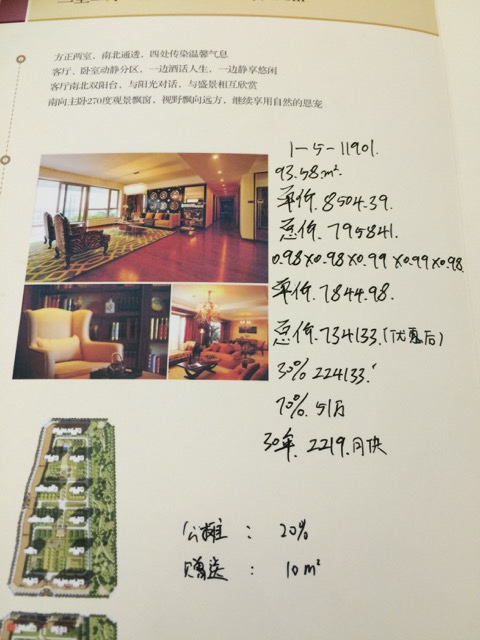 方正两室，南北通透，四处传染温馨气息
客厅、卧室动静分区，一边洒话人生，一边静享悠闲
客厅南北双阳台，与阳光对话，与盛景相互欣赏
南向主卧270度观景飘窗，视野飘向远方，继续享用自然的恩宠
1-5-11901.
93.58m².
单价.8504.39.
总价.795841.
0.98×0.98×0.99×0.99×0.98
单价.7844.98.
总价.734133.(优惠后)
30% 224133.
70%.51万
30年.2219.月供
公摊：20%
赠送：10m²